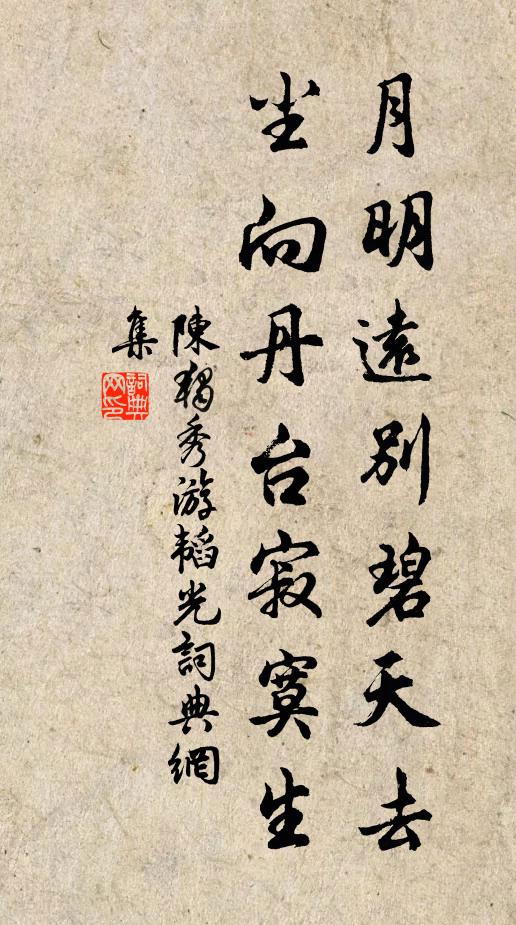 月明遠別碧天去
坐向丹台寂寞生
陳獨秀游韜光詞典網
集
詞典
网印